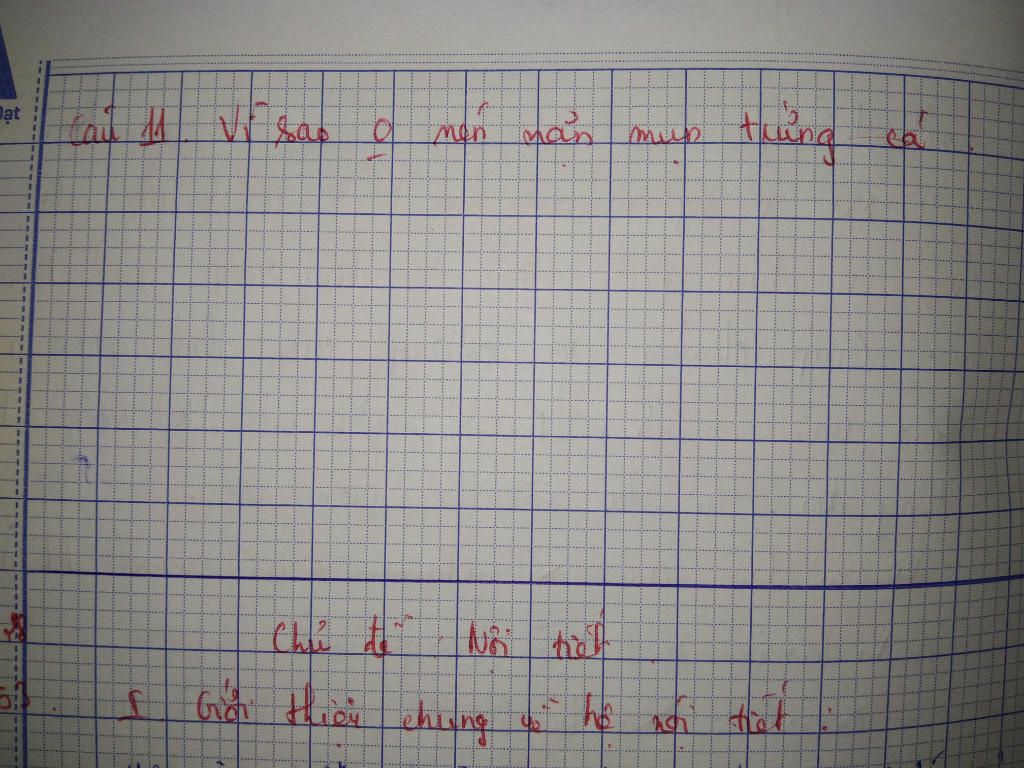 Đạt
Câu 11. Vì sao 0 nên nặn mụn trứng cá.
Chủ đề: Nội tiết
53. I. Giới thiệu chung về hệ nội tiết: